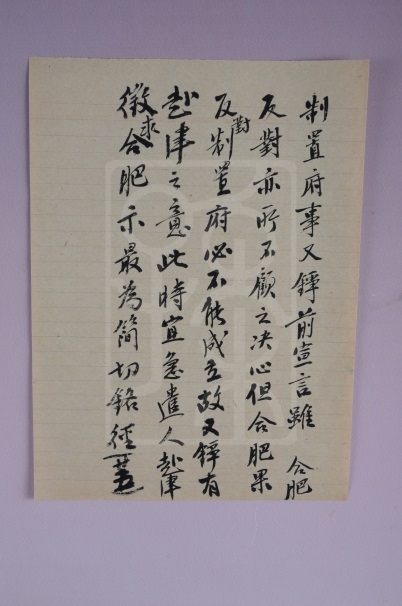 制置府事又錚前宣言雖 合肥
反對亦所不顧之決心但合肥果
反對制置府必不能成立故又錚有
赴津之意此時宜急遣人赴津
徵求合肥示最為簡切銘徑